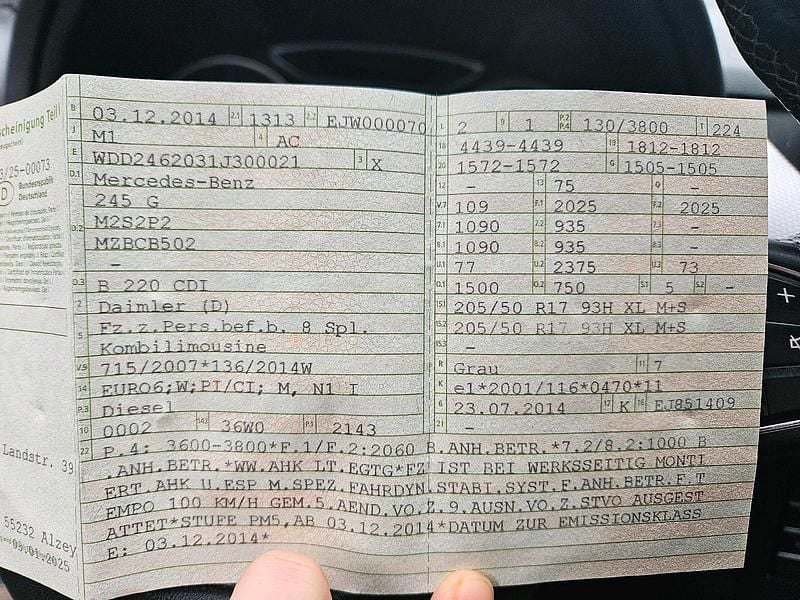 scheinigung Teil I
/25-00073
D
Bundesrepublik
Deutschland
Landstr. 39
55232 Alzey
B 03.12.2014 2.1 1313 2.2 EJW000070
J M1 4 AC
E WDD2462031J300021 3 X
D.1 Mercedes-Benz
245 G
D.2 M2S2P2
MZBCB502
-
D.3 B 220 CDI
2 Daimler (D)
5 Fz.z.Pers.bef.b. 8 Spl.
Kombilimousine
V.9 715/2007*136/2014W
14 EURO6;W;PI/CI; M, N1 I
P.3 Diesel
10 0002 14.1 36W0 P.1 2143
L 2 9 1 P.2 P.4 130/3800 T 224
18 4439-4439 19 1812-1812
20 1572-1572 G 1505-1505
12 - 13 75 Q -
V.7 109 F.1 2025 F.2 2025
7.1 1090 7.2 935 7.3 -
8.1 1090 8.2 935 8.3 -
U.1 77 U.2 2375 U.3 73
O.1 1500 O.2 750 S.1 5 S.2 -
15.1 205/50 R17 93H XL M+S
15.2 205/50 R17 93H XL M+S
15.3 -
R Grau 11 7
K e1*2001/116*0470*11
6 23.07.2014 17 K 16 EJ851409
21 -
22 P.4: 3600-3800*F.1/F.2:2060 B.ANH.BETR.*7.2/8.2:1000 B
.ANH.BETR.*WW.AHK LT.EGTG*FZ IST BEI WERKSSEITIG MONTI
ERT.AHK U.ESP M.SPEZ.FAHRDYN.STABI.SYST.F.ANH.BETR.F.T
EMPO 100 KM/H GEM.5.AEND.VO.Z.9.AUSN.VO.Z.STVO AUSGEST
ATTET*STUFE PM5,AB 03.12.2014*DATUM ZUR EMISSIONSKLASS
E: 03.12.2014*